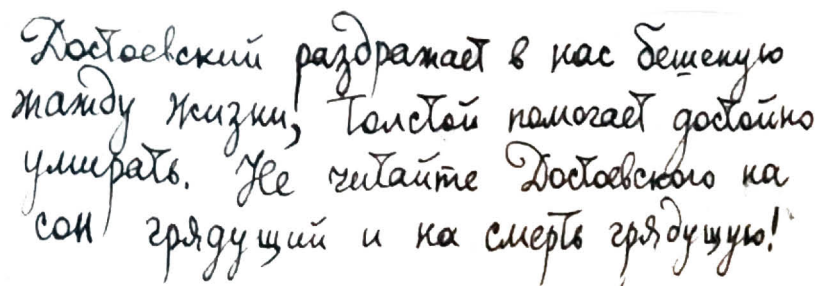 Достоевский раздражает в нас бешеную
жажду жизни, Толстой помогает достойно
умирать. Не читайте Достоевского на
сон грядущий и на смерть грядущую!